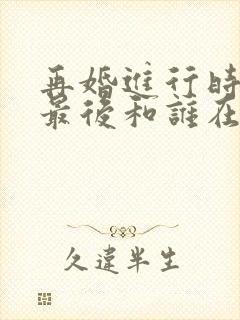 再婚進行時
最後和誰在
久違半生